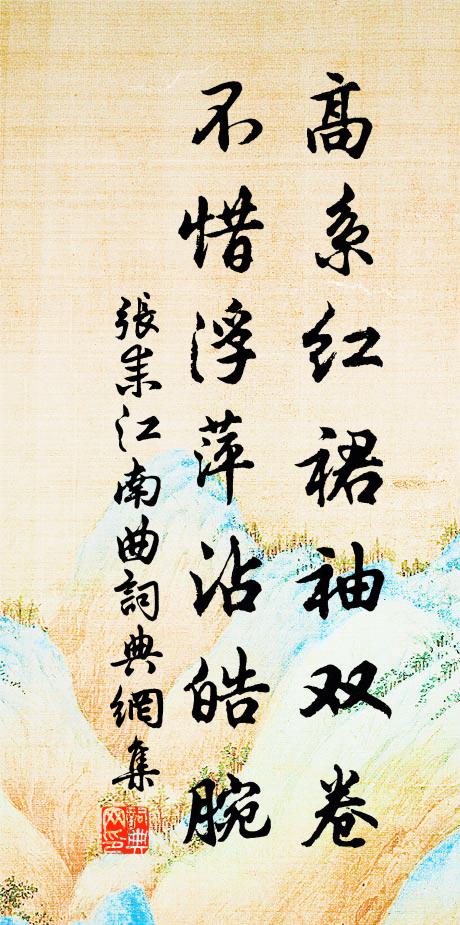 高系红裙袖双卷
不惜浮萍沾皓腕
張耒江南曲詞典網集
詞典网印